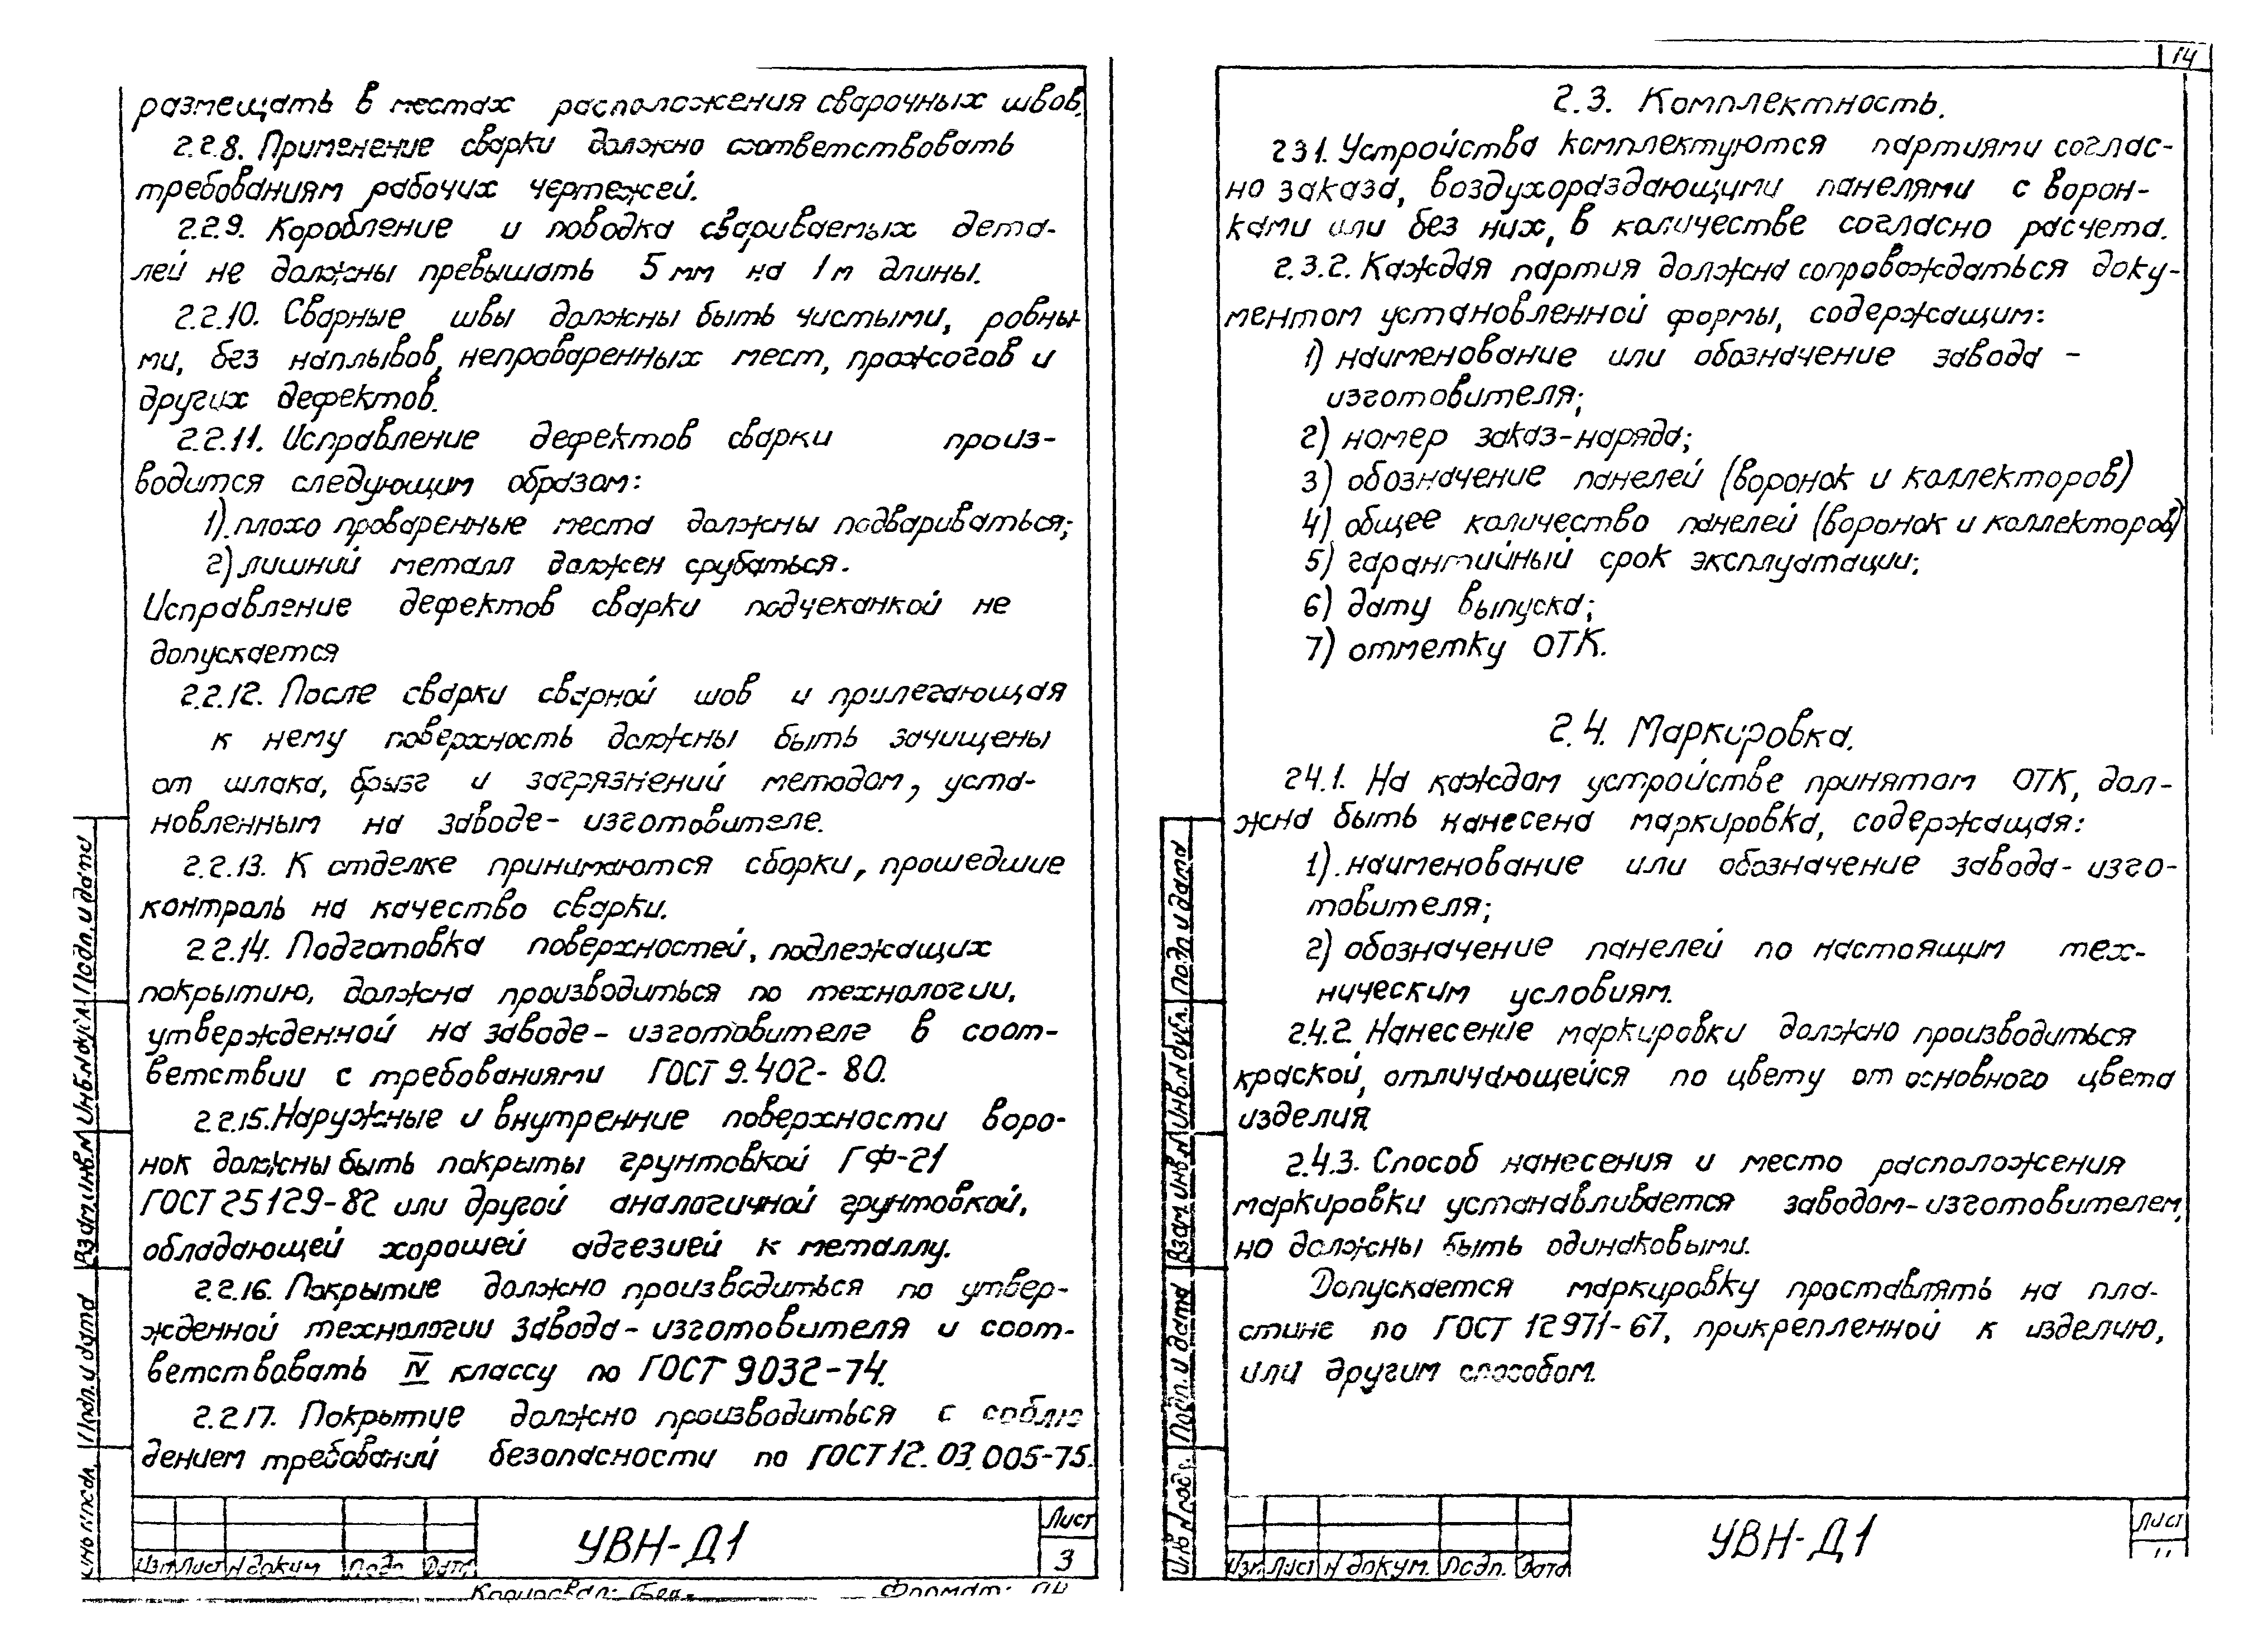 размещать в местах расположения сварочных швов.
2.2.8. Применение сварки должно соответствовать
требованиям рабочих чертежей.
2.2.9. Коробление и поводка свариваемых дета-
лей не должны превышать 5 мм на 1 м длины.
2.2.10. Сварные швы должны быть чистыми, ровны-
ми, без наплывов, непроваренных мест, прожогов и
других дефектов.
2.2.11. Исправление дефектов сварки произ-
водится следующим образом:
1). плохо проваренные места должны подвариваться;
2) лишний металл должен срубаться.
Исправление дефектов сварки подчеканкой не
допускается
2.2.12. После сварки сварной шов и прилегающая
к нему поверхность должны быть зачищены
от шлака, брызг и загрязнений методом, уста-
новленным на заводе- изготовителе.
2.2.13. К отделке принимаются сборки, прошедшие
контроль на качество сварки.
2.2.14. Подготовка поверхностей, подлежащих
покрытию, должна производиться по технологии,
утвержденной на заводе- изготовителе в соот-
ветствии с требованиями ГОСТ 9.402- 80.
2.2.15. Наружные и внутренние поверхности воро-
нок должны быть покрыты грунтовкой ГФ-21
ГОСТ 25129-82 или другой аналогичной грунтовкой,
обладающей хорошей адгезией к металлу.
2.2.16. Покрытие должно производиться по утвер-
жденной технологии завода-изготовителя и соот-
ветствовать IV классу по ГОСТ 9032-74.
2.2.17. Покрытие должно производиться с соблю
дением требований безопасности по ГОСТ 12.03.005-75.
Подп. и дата
Инв.N дубл.
Взам.инв.N
Подп. и дата
Изм Лист N докум Подп Дата
УВН-Д1
Лист
3
Копировал:
Формат:
14
2.3. Комплектность.
2.3.1. Устройства комплектуются партиями соглас-
но заказа, воздухораздающими панелями с ворон-
ками или без них, в количестве согласно расчета.
2.3.2. Каждая партия должна сопровождаться доку-
ментом установленной формы, содержащим:
1) наименование или обозначение завода -
изготовителя;
2) номер заказ-наряда;
3) обозначение панелей (воронок и коллекторов)
4) общее количество панелей (воронок и коллекторов)
5) гарантийный срок эксплуатации;
6) дату выпуска;
7) отметку ОТК.
2.4. Маркировка.
2.4.1. На каждом устройстве принятом ОТК, дол-
жна быть нанесена маркировка, содержащая:
1). наименование или обозначение завода- изго-
товителя;
2) обозначение панелей по настоящим тех-
ническим условиям.
2.4.2. Нанесение маркировки должно производиться
краской, отличающейся по цвету от основного цвета
изделия.
2.4.3. Способ нанесения и место расположения
маркировки устанавливается заводом-изготовителем,
но должны быть одинаковыми.
Допускается маркировку проставлять на пла-
стине по ГОСТ 12971-67, прикрепленной к изделию,
или другим способом.
Подп и дата
Инв.N дубл.
Взам инв.N
Подп. и дата
Инв N подл.
Изм. Лист N докум. Подп. Дата
УВН-Д1
Лист